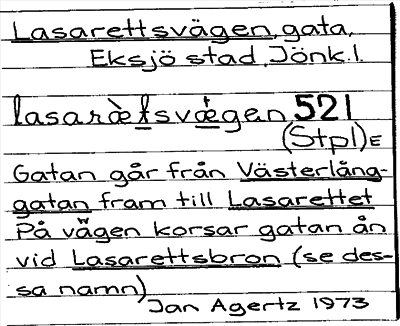 Lasarettsvägen, gata,
Eksjö stad, Jönk.l.
lasarὲtsvægen 521
(Stpl)E
Gatan går från Västerlång-
gatan fram till Lasarettet
På vägen korsar gatan ån
vid Lasarettsbron (se des-
sa namn)
Jan Agertz 1973